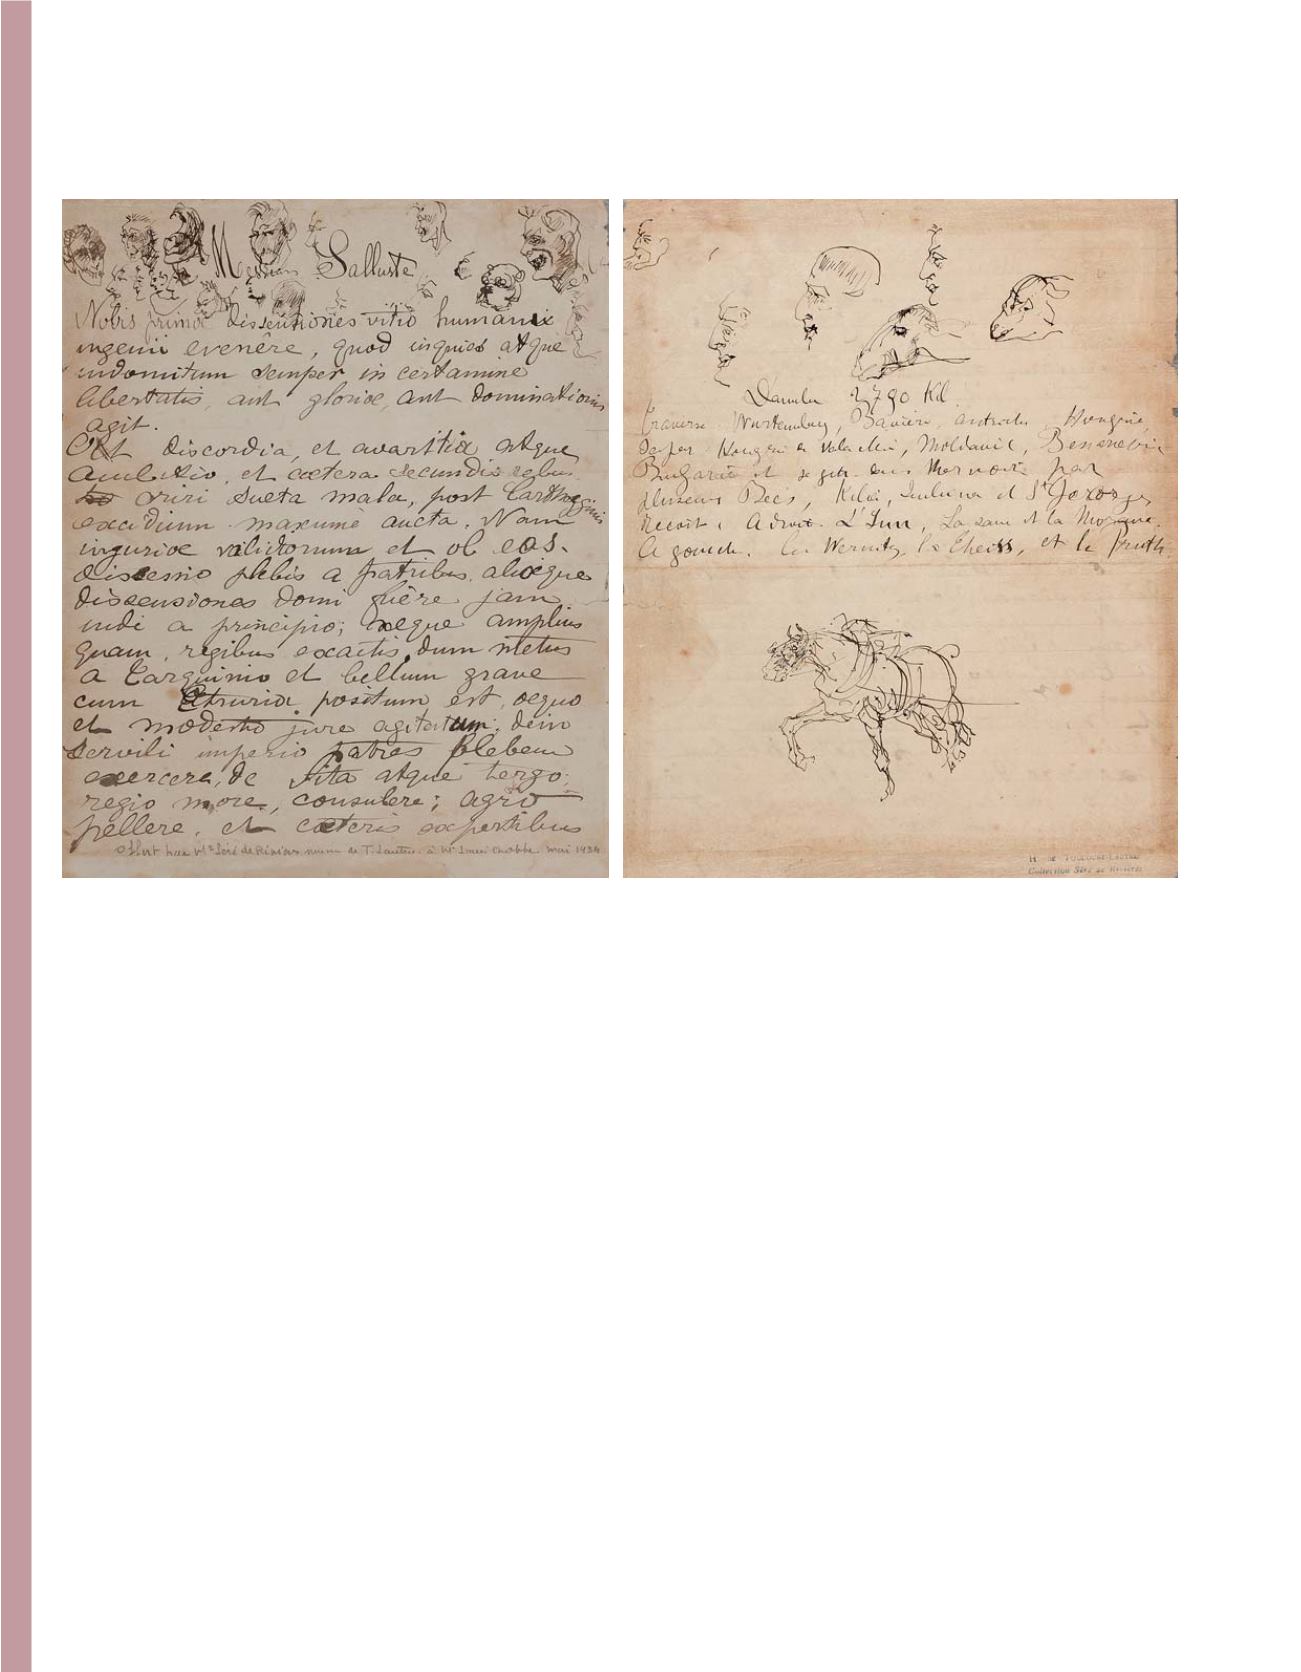 Messieurs Salluste
Nobis primæ dissentiones vitio humanix
ingenii evenêre, quod inquies atque
indomitum semper in certamine
libertatis, aut gloriæ, aut dominationis
agit.
Ost discordia, et avaritia atque
Ambitio, et cætera secundis rebus
oriri sueta mala, post Carthaginis
excidium maxume aucta. Nam
injuriæ validiorum et ob eas.
discessio plebis a patribus aliæque
dissensiones domi fuêre jam
inde a principio; neque amplius
quam, regibus exactis, dum metus
a Tarquinio et bellum grave
cum Etruria positum est, æquo
et modesto jure agitatum: dein
servili imperio patres plebem
exercere, de vita atque tergo,
regio more, consulere; agro
pellere, et cæteris expertibus
offert par Mr Séré de Rivières de T. Lautrec à Mr mai 1934
Danube 2790 Kil
traverse Wurtemberg, Bavière, autriche, Hongrie,
Hongrie Moldavie, Bessarabie
Bulgarie et se jette dans Mer noire par
plusieurs Becs, Kilia, Sulina et St Georges
Reçoit: A droite. L'Inn, La save et la Morave.
A gauche. la Wernitz, la Theiss, et le Pruth
H. de TOULOUSE-LAUTREC
Collection Séré de Rivières